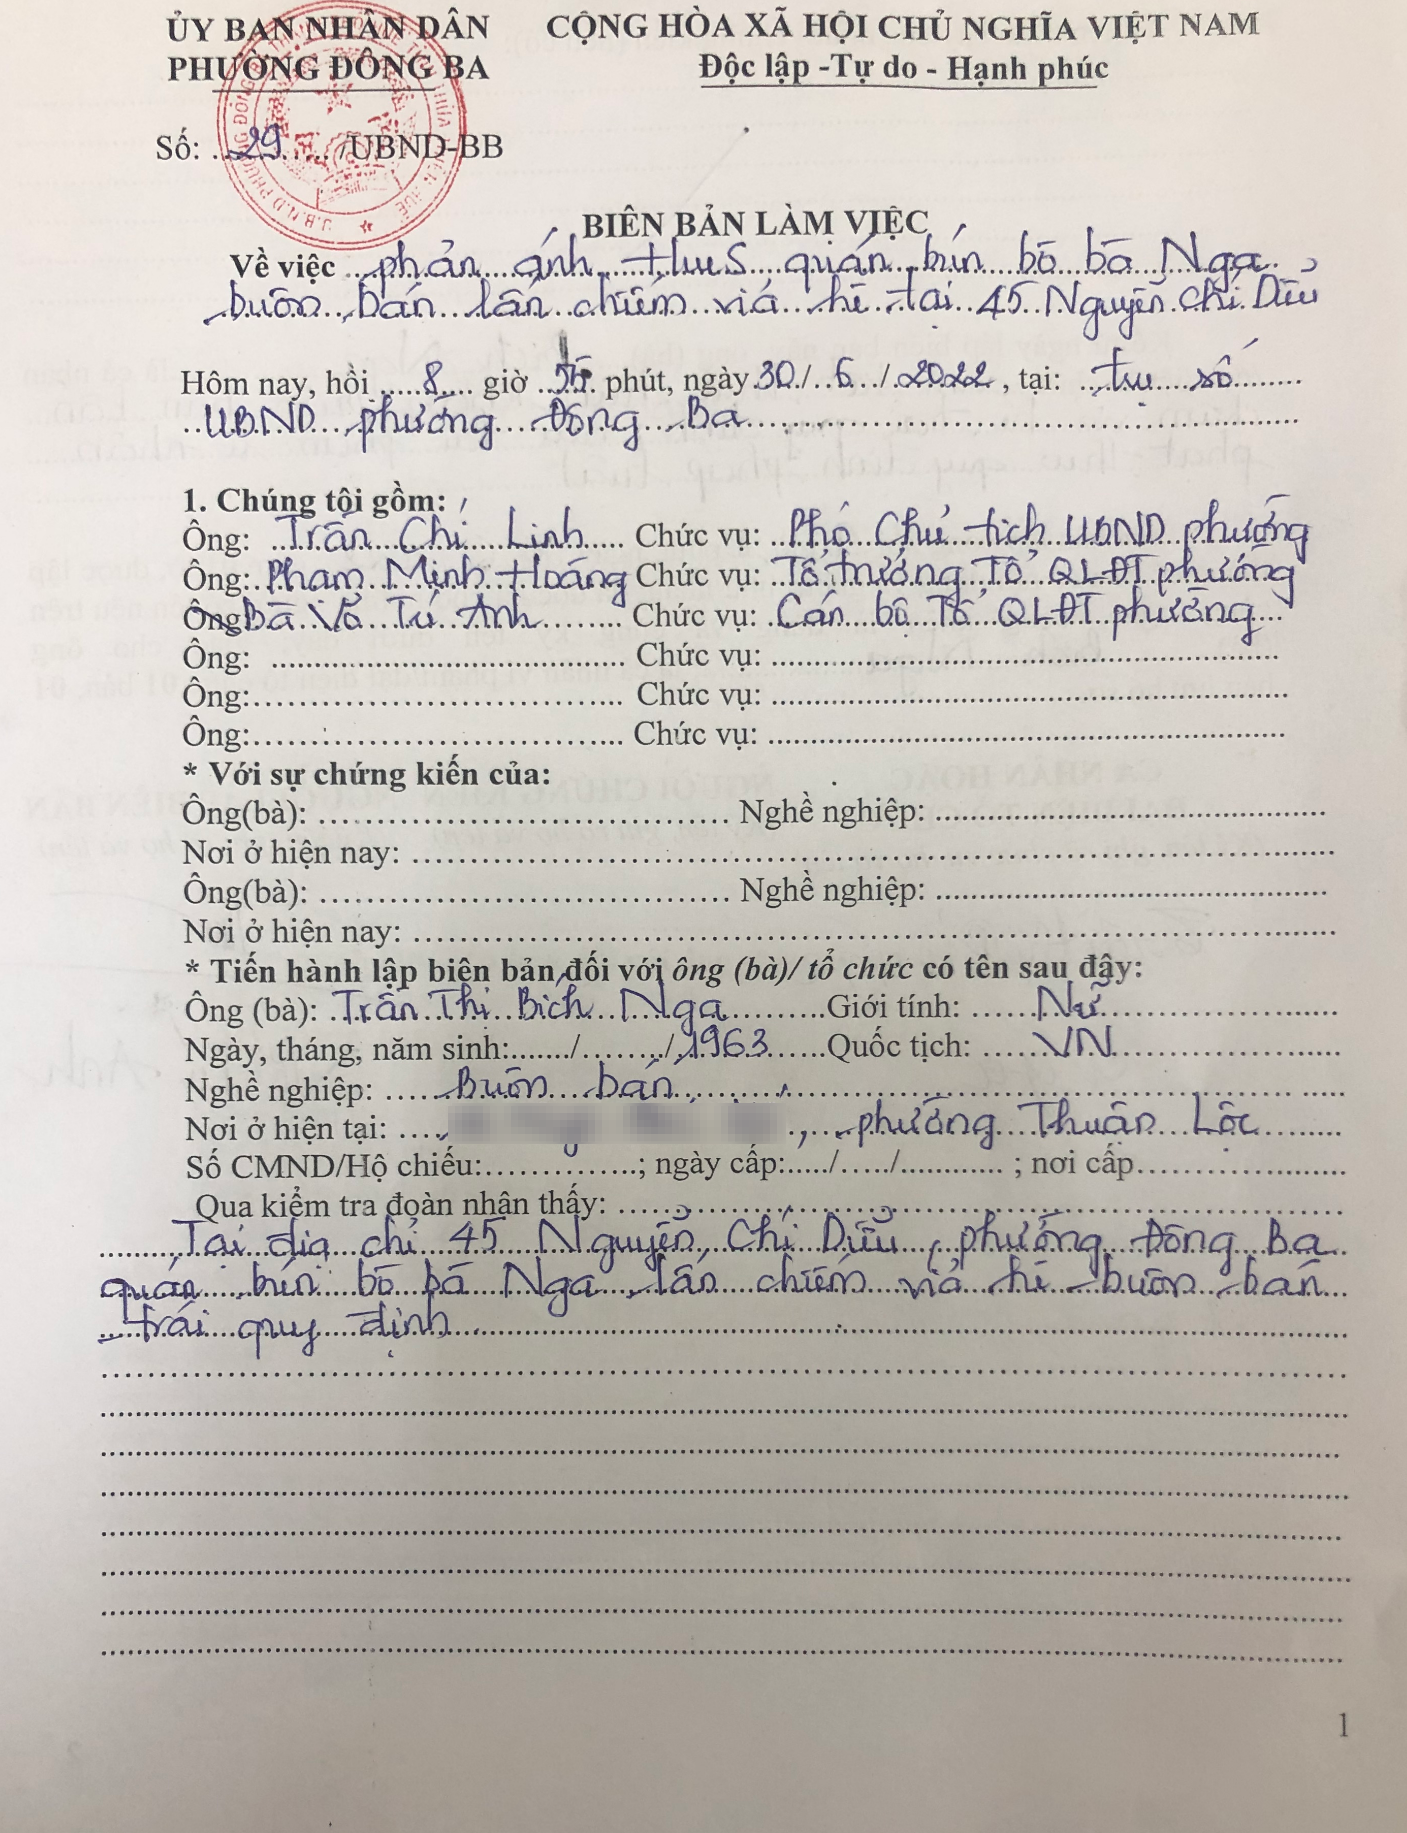 ỦY BAN NHÂN DÂN
PHƯỜNG ĐÔNG BA
CỘNG HÒA XÃ HỘI CHỦ NGHĨA VIỆT NAM
Độc lập -Tự do - Hạnh phúc
Số: ..29...... /UBND-BB
BIÊN BẢN LÀM VIỆC
Về việc ..phản ánh HueS quán bún bò bà Nga
buôn bán lấn chiếm vỉa hè tại 45 Nguyễn Chí Diểu
Hôm nay, hồi .....8.... giờ ........ phút, ngày 30./..6../.2022., tại: ..trụ sở........
..UBND phường Đông Ba..............................
1. Chúng tội gồm:
Ông: ..Trần Chí Linh..... Chức vụ: ..Phó Chủ tịch UBND phường
Ông: Phạm Minh Hoàng Chức vụ: Tổ trưởng Tổ QLĐT phường
Ông Bà Võ Tú Anh........ Chức vụ: .Cán bộ Tổ QLĐT phường....
Ông: ........................................ Chức vụ: ........................................
Ông:........................................ Chức vụ: ........................................
Ông:........................................ Chức vụ: ........................................
* Với sự chứng kiến của:
Ông(bà): ........................................ Nghề nghiệp: ........................................
Nơi ở hiện nay: ................................................................................
Ông(bà): ........................................ Nghề nghiệp: ........................................
Nơi ở hiện nay: ................................................................................
* Tiến hành lập biên bản đối với ông (bà)/ tổ chức có tên sau đây:
Ông (bà): .Trần Thị Bích Nga..........Giới tính: ......Nữ...............
Ngày, tháng, năm sinh:......./......../.1963......Quốc tịch: ......VN...............
Nghề nghiệp: .....Buôn bán........................................
Nơi ở hiện tại: ...., ....phường Thuận Lộc.........
Số CMND/Hộ chiếu:...............; ngày cấp:...../...../............ ; nơi cấp....................
Qua kiểm tra đoàn nhận thấy: ............................................................
.........Tại địa chỉ 45 Nguyễn Chí Diểu, phường Đông Ba..
quán bún bò bà Nga lấn chiếm vỉa hè buôn bán...
..trái quy định........................................
1